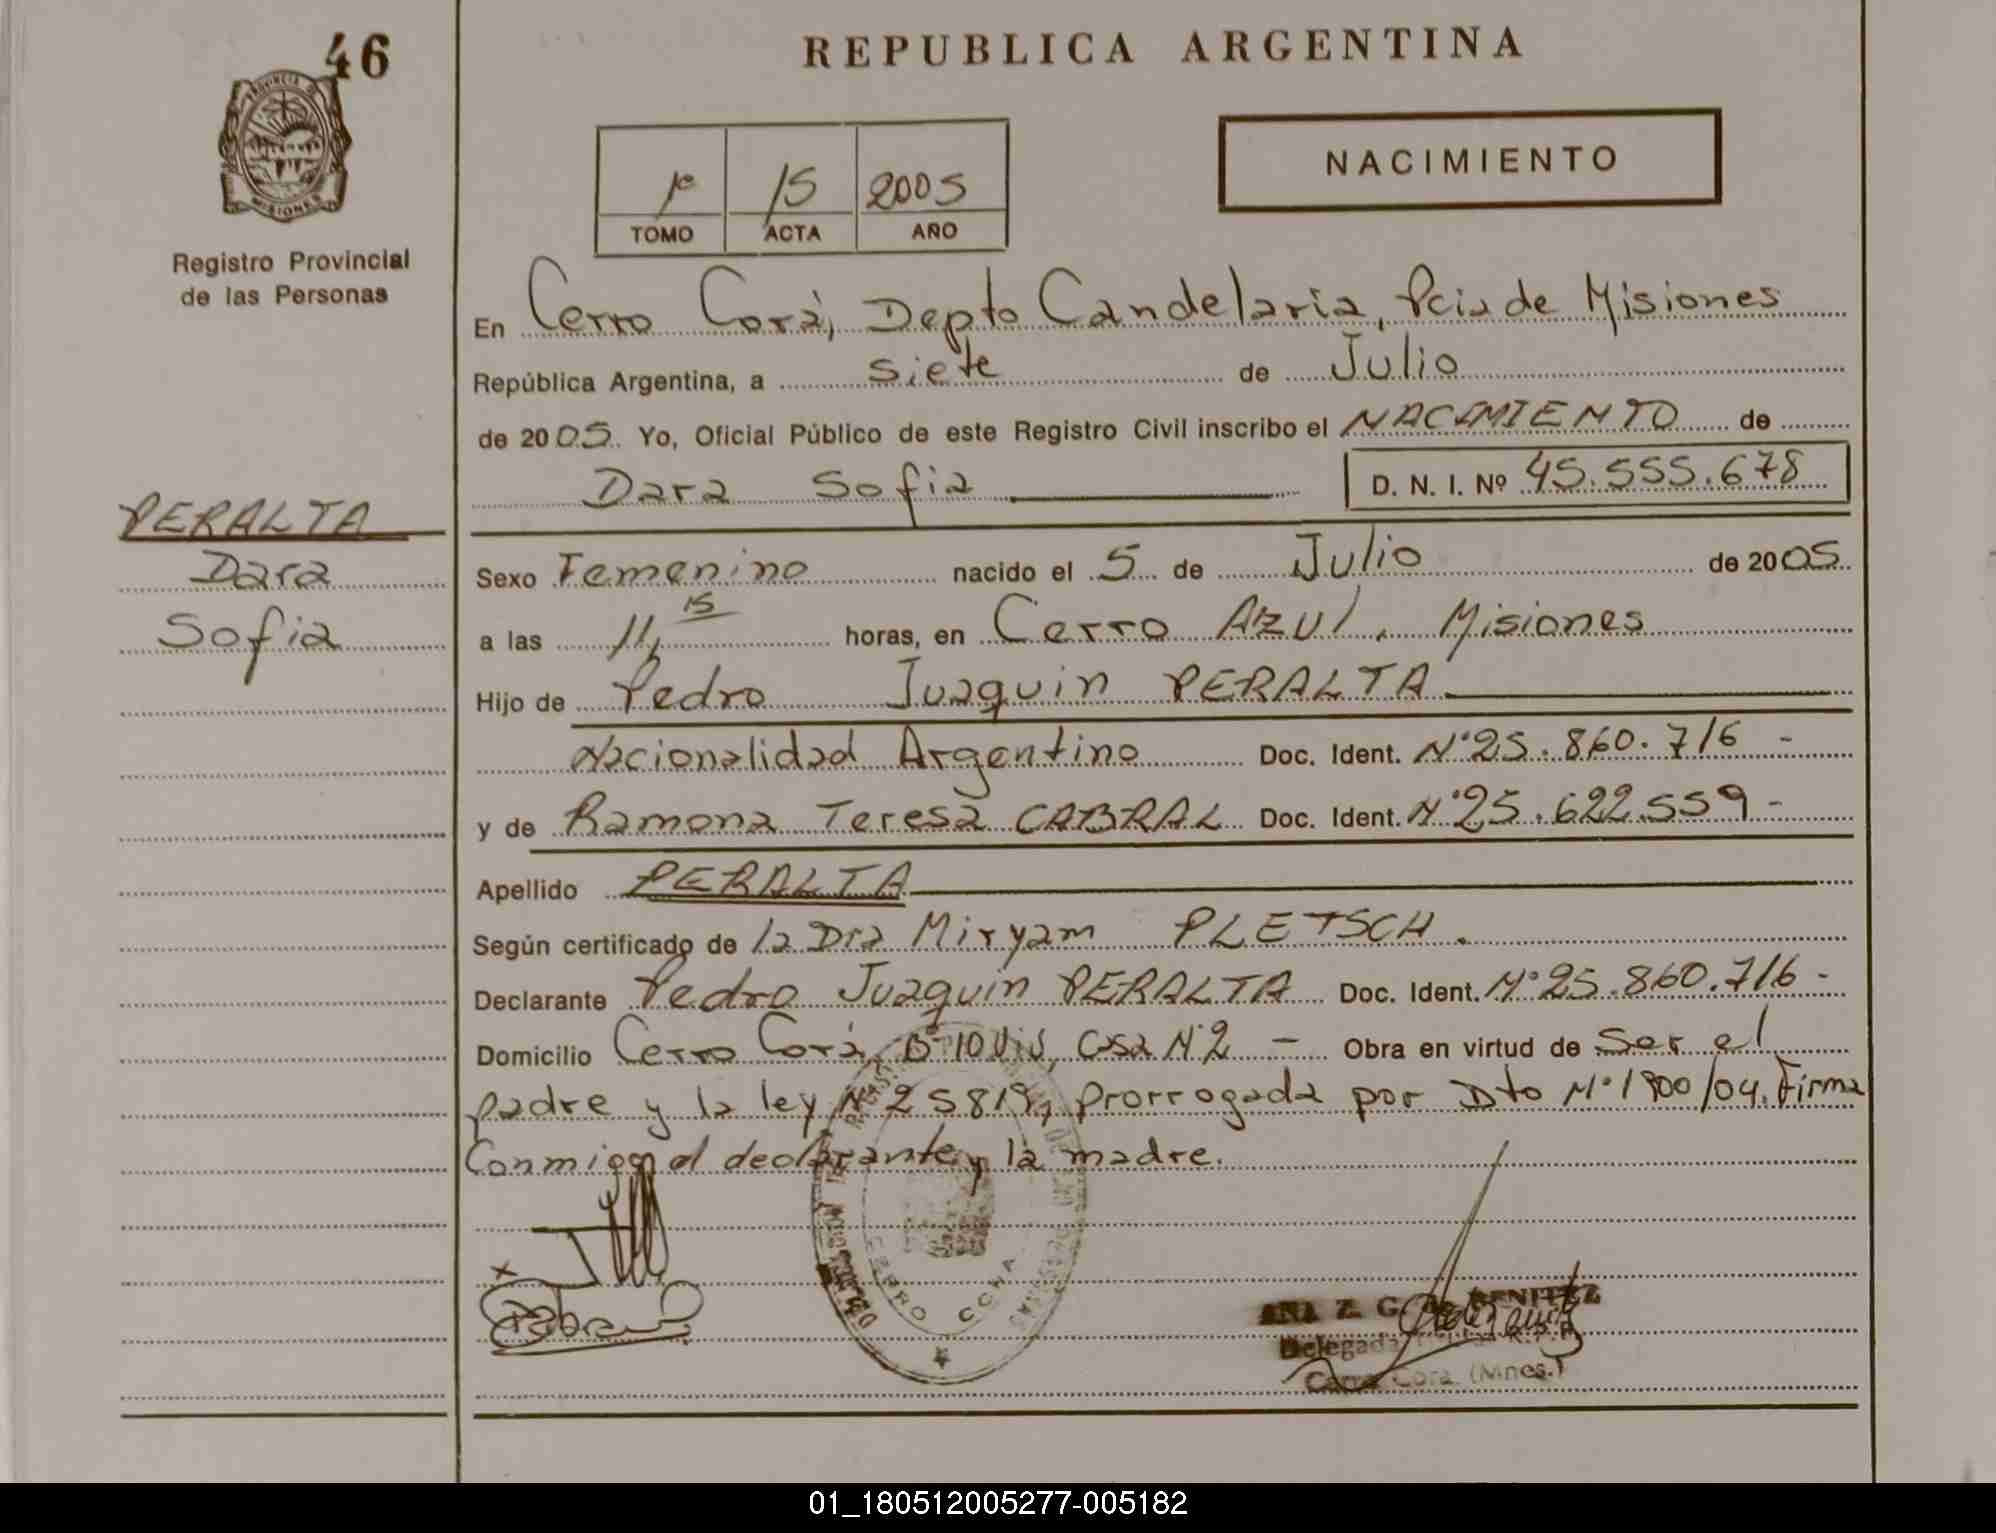 46
REPUBLICA ARGENTINA
PROVINCIA DE
MISIONES
Registro Provincial
de las Personas
1º 15 2005
TOMO ACTA AÑO
NACIMIENTO
En Cerro Corà, Depto Candelaria, Pcia de Misiones
República Argentina, a siete de Julio
de 2005. Yo, Oficial Público de este Registro Civil inscribo el NACIMIENTO de
Dara Sofia D. N. I. Nº 45.555.678
PERALTA
Dara
Sofia
Sexo Femenino nacido el 5 de Julio de 2005
a las 11,15 horas, en Cerro Azul, Misiones
Hijo de Pedro Juaquin PERALTA
Nacionalidad Argentino Doc. Ident. Nº 25.860.716 -
y de Ramona Teresa CABRAL Doc. Ident. Nº 25.622.559 -
Apellido PERALTA
Según certificado de la Dra Miryam PLETSCH.
Declarante Pedro Juaquin PERALTA Doc. Ident. Nº 25.860.716 -
Domicilio Cerro Corà, Bº 10 Viv, Casa Nº 2 - Obra en virtud de Ser el
padre y la ley Nº 25819, prorrogada por Dto Nº 1900/04. Firma
Conmigo el declarante y la madre.
CERRO CORA
ANA Z. G. de BENITEZ
Delegada
Cerro Cora (Mnes.)
01_180512005277-005182